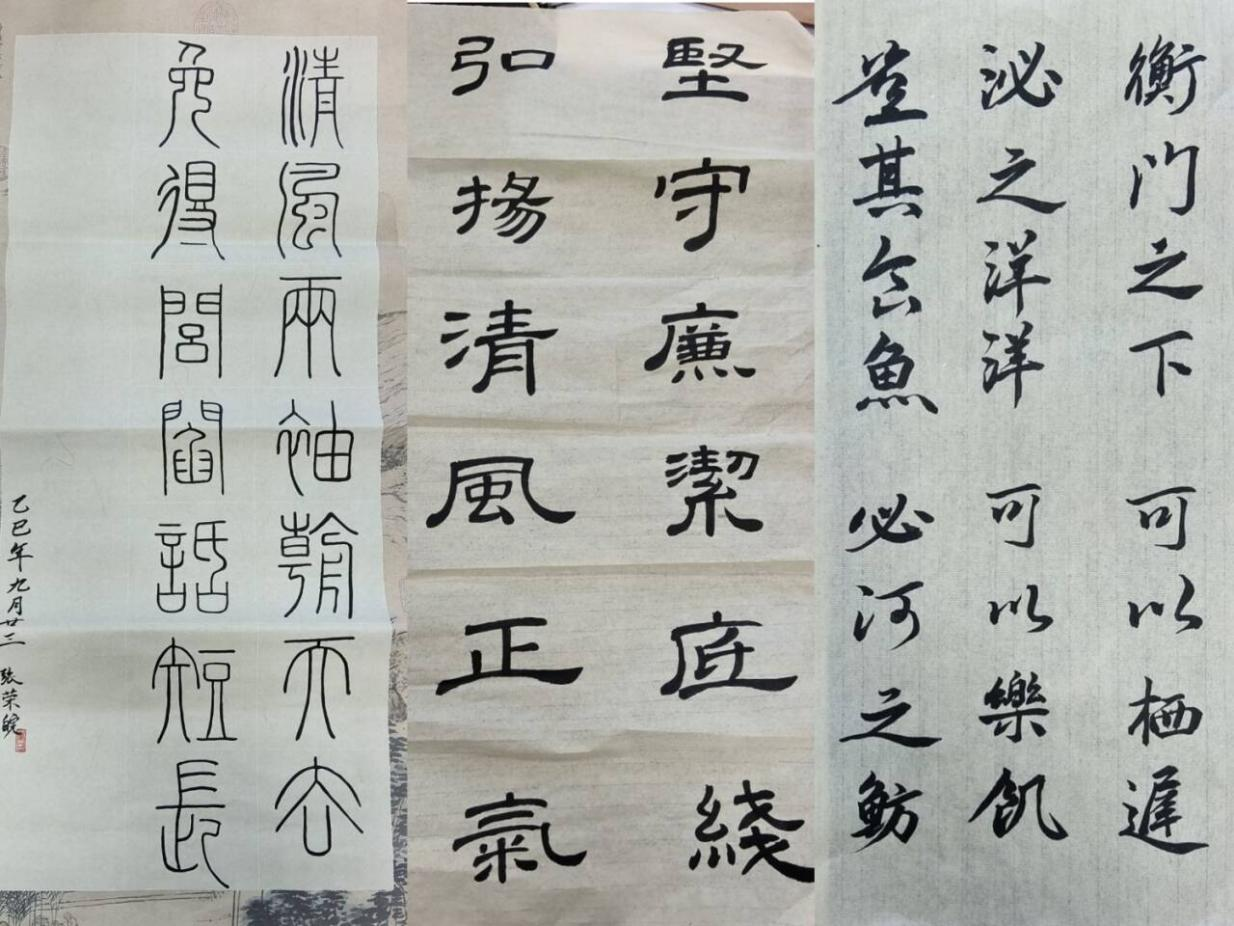 清風兩袖朝天去
免得閭閻話短長
乙巳年九月廿三 張荣
堅守廉潔底綫
弘揚清風正氣
衡门之下 可以栖遲
泌之洋洋 可以樂飢
豈其食魚 必河之魴